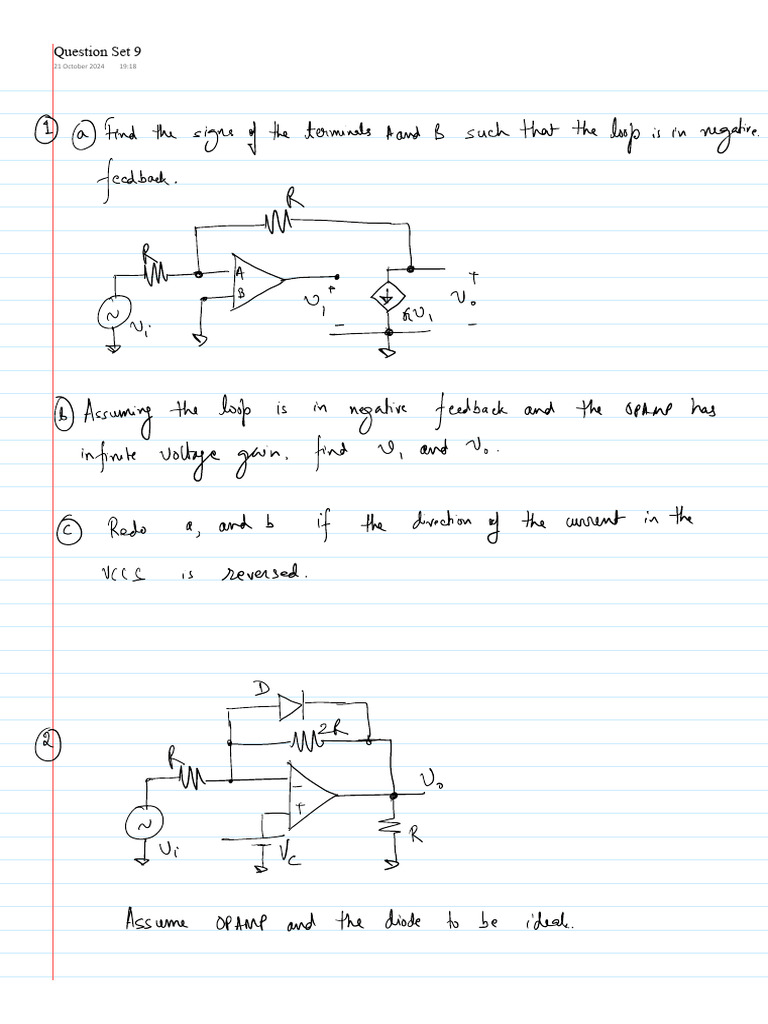 Question Set 9
21 October 2024 19:18
1 a Find the signs of the terminals A and B such that the loop is in negative
feedback.
R
R
A
B
+
V1
-
+
V0
-
kV1
Vi
b Assuming the loop is in negative feedback and the OPAMP has
infinite voltage gain, find V1 and V0.
c Redo a, and b if the direction of the current in the
VCCS is reversed.
D
2
2R
R
-
+
V0
Vi
VC
R
Assume OPAMP and the diode to be ideal.